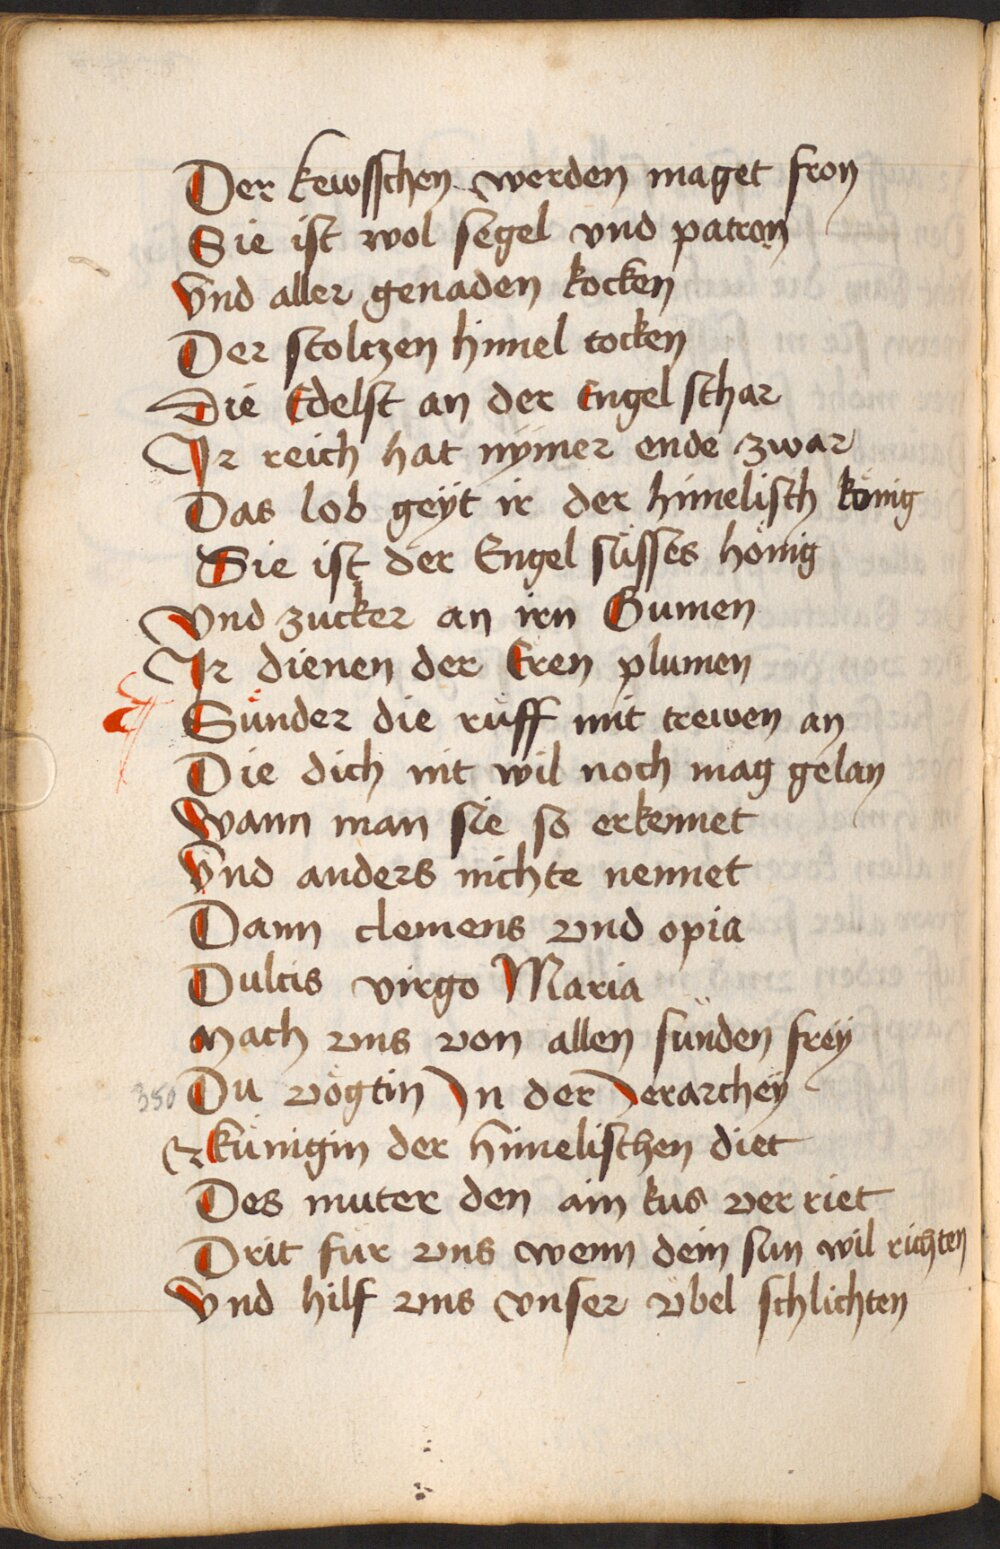 Der kewsschen werden maget fron
Sie ist wol segel vnd patron
Vnd aller genaden kocken
Der stoltzen himel tocken
Die Edelst an der Engel schar
Ir reich hat nymer ende zwar
Das lob geyt ir der himelisch könig
Sie ist der Engel süsses hönig
Vnd zucker an irn Gumen
Ir dienen der Eren plumen
Sünder die rüff mit trewen an
Die dich nit wil noch mag gelan
Wann man sie so erkennet
Vnd anders nichte nennet
Dann clemens vnd opia
Dulcis virgo Maria
Mach vns von allen sünden frey
350 Du vögtin In der Ierarchey
künigin der himelischen diet
Des muter den ain kus ver riet
Drit für vns wenn dein sun wil richten
Vnd hilf vns vnser vbel schlichten